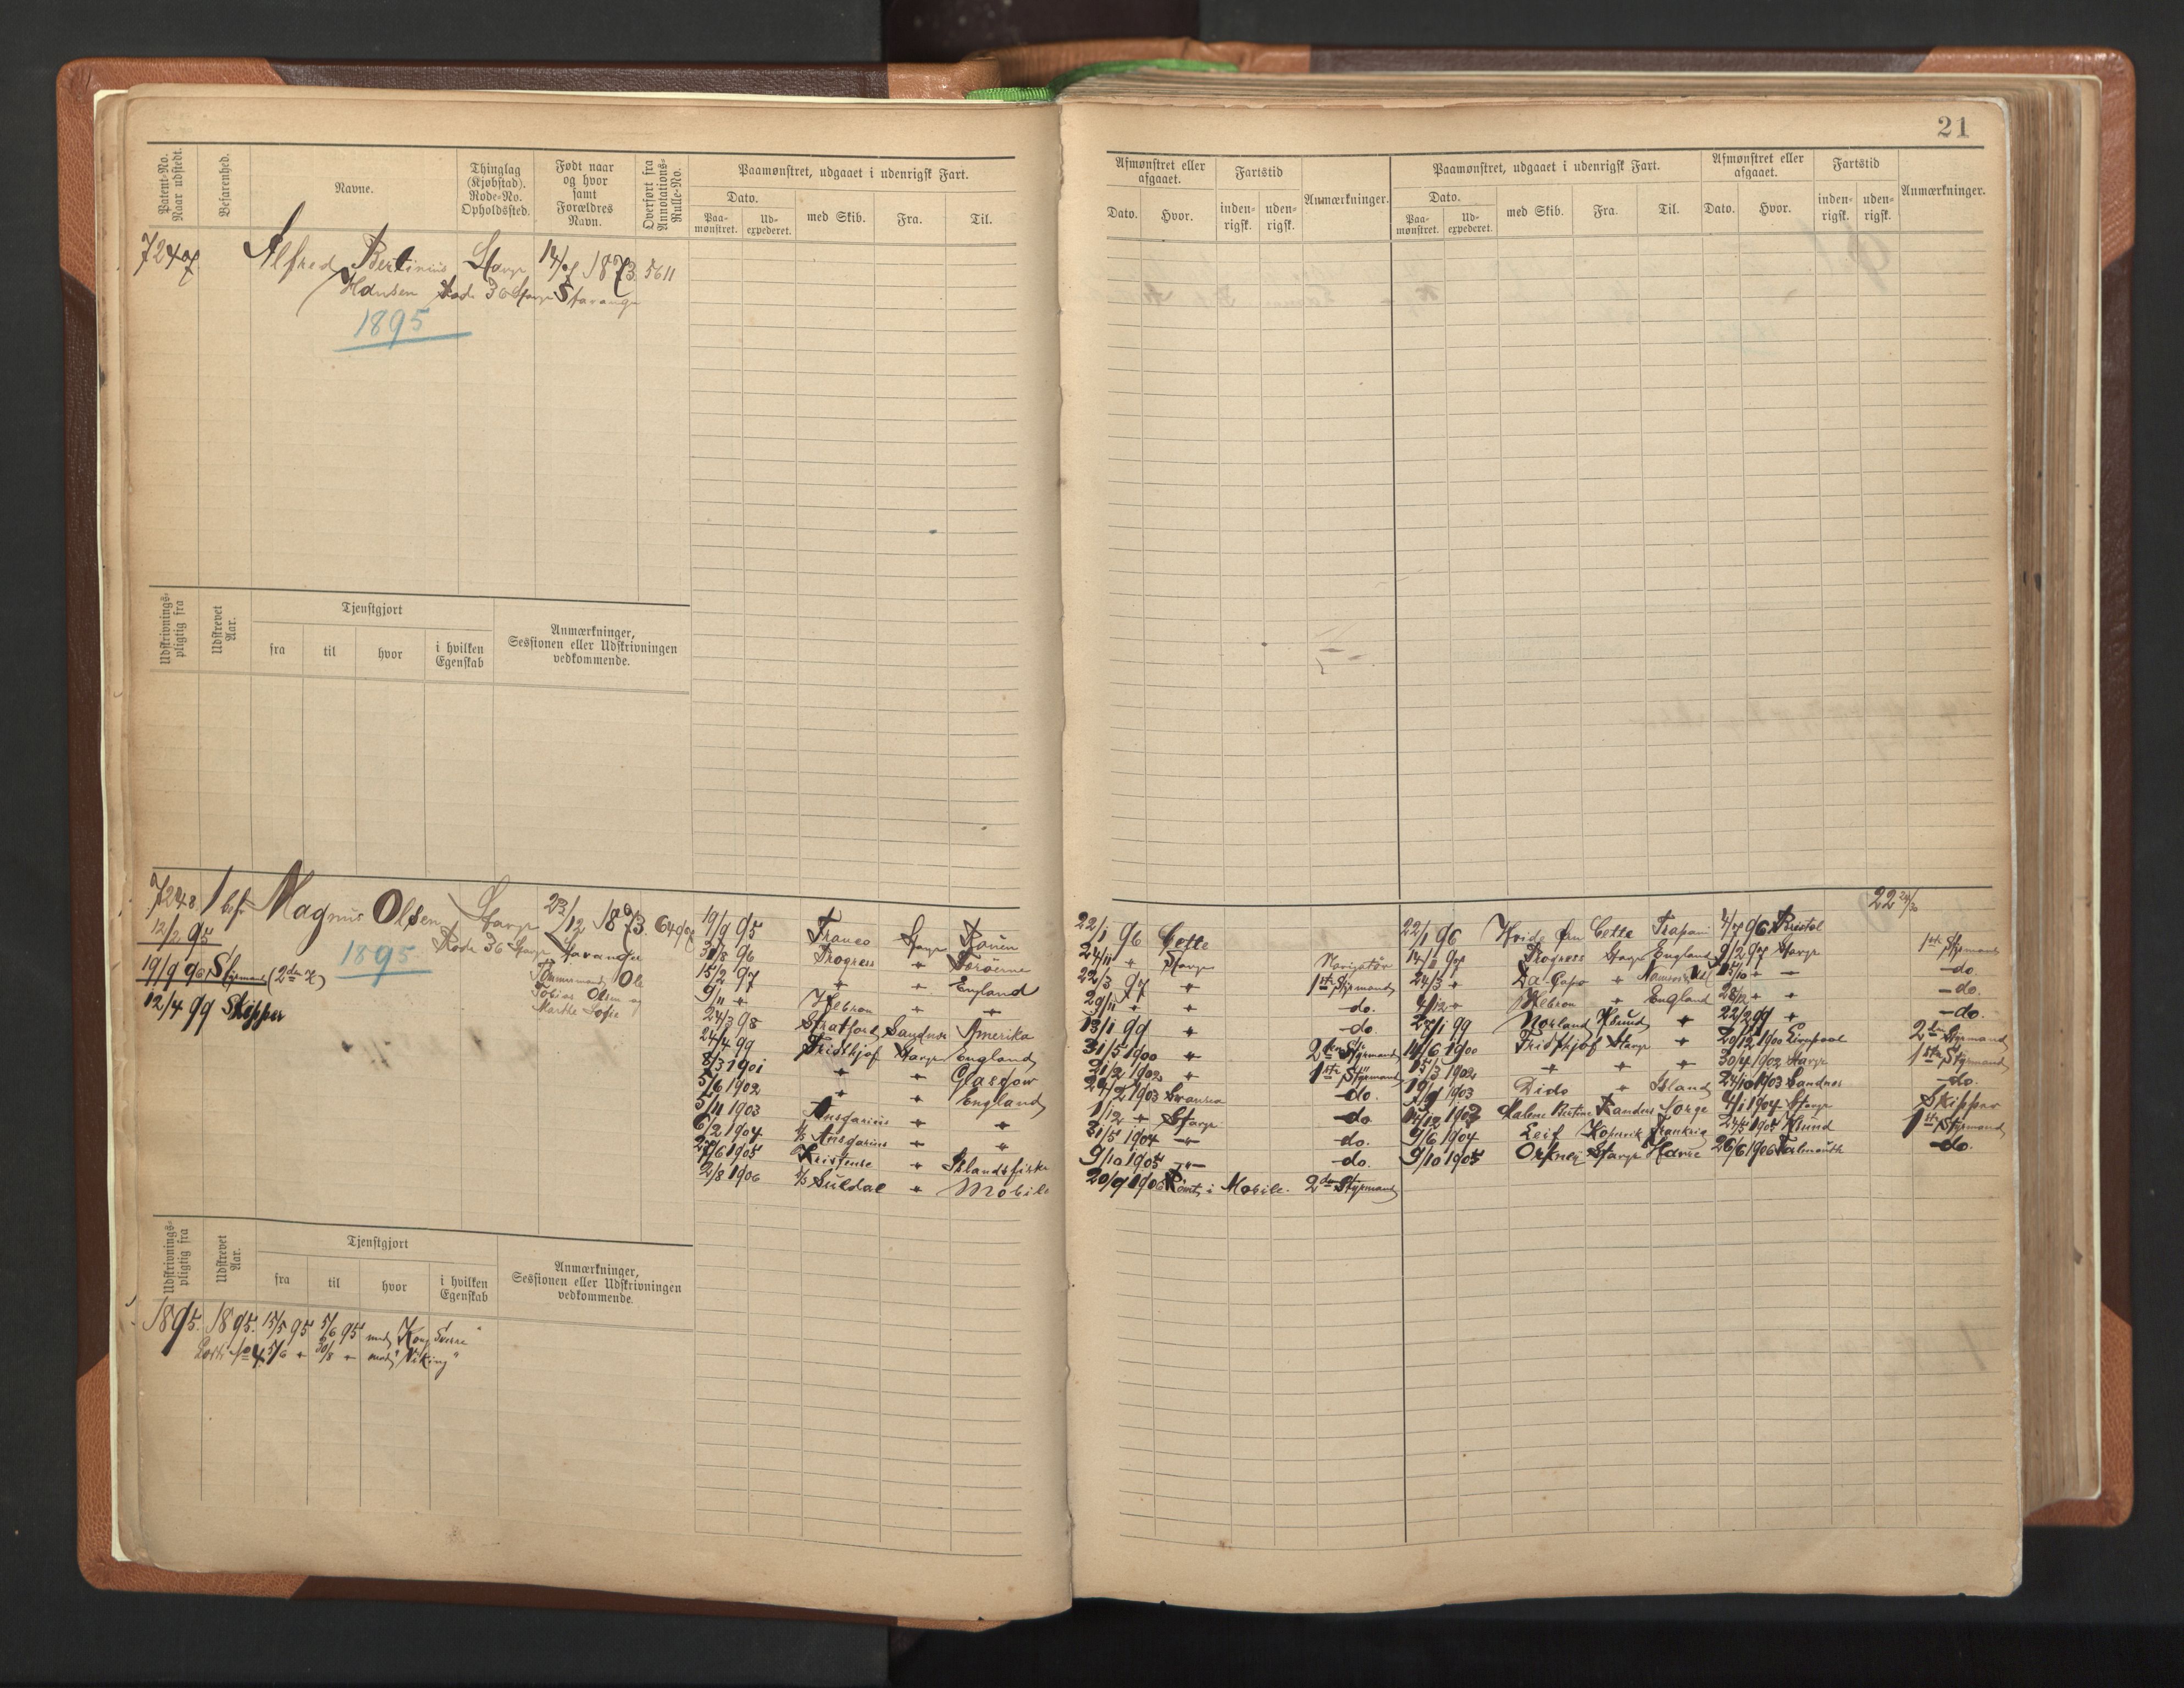 21
Patent-No. Naar udstedt.
Befarenhed.
Navne.
Thinglag (Kjøbstad). Rode-No. Opholdssted.
Født naar og hvor samt Forældres Navn.
Overført fra Annotations-Rulle-No.
Paamønstret, udgaaet i udenrigsk Fart.
Dato.
Paa-mønstret.
Ud-expederet.
med Skib.
Fra.
Til.
Afmønstret eller afgaaet.
Dato.
Hvor.
Fartstid
inden-rigsk.
uden-rigsk.
Anmærkninger.
Paamønstret, udgaaet i udenrigsk Fart.
Dato.
Paa-mønstret.
Ud-expederet.
med Skib.
Fra.
Til.
Afmønstret eller afgaaet.
Dato.
Hvor.
Fartstid
inden-rigsk.
uden-rigsk.
Anmærkninger.
7247 Alfred Bertinius Stavgr 14/7 1873. 5611
Hansen Rode 36 Stavgr Stavanger
1895
Udskrivnings-pligtig fra
Udskrevet Aar.
Tjenstgjort
fra
til
hvor
i hvilken Egenskab
Anmærkninger, Sessionen eller Udskrivningen vedkommende.
7248 1 bef. Magnus Olsen Stavgr 23/12 1873.
12/2 95 1895 Rode 36 Stavgr Stavanger
19/9 96 Styrmand (2den Kl) Tømmermand Ole
12/4 99 Skipper Tobias Olsen og
Marthe Sofie
22 24/30
19/9 95 Franco Stavgr Rouen 22/1 96 Cette 22/1 96 Hvide fru Cette Trapani 4/7 96 Bristol
31/8 96 Progress " Færøerne 24/11 " Stavgr Navigatør Progress Stavgr England 9/2 97 Stavgr 1ste Styrmand
15/2 97 " " England 22/3 97 " 1ste Styrmand 24/3 " Da Capo " 15/10 " — do.
9/11 " Hebron " " 29/11 " " do. 4/12 " Hebron " England 28/12 " " do.
24/3 98 Stratford Sandnes Amerika 13/1 99 " do. 27/1 99 Norland Hsund " 22/2 99 " do.
24/4 99 Fridthjof Stavgr England 31/5 1900 " 2den Styrmand 14/6 1900 Fridthjof Stavgr " 20/12 1900 Liverpool 2den Styrmand
8/3 1901 " " Glasgow 31/2 1902 " 1ste Styrmand 15/3 1902 " " " 30/4 1902 Stavgr 1ste Styrmand
5/6 1902 " " England 24/2 1903 Swansea do. 19/9 1903 Dido " Island 24/10 1903 Sandnes do.
5/11 1903 Ansgarius " " 1/12 " Stavgr do Malene Kirstine Randers Norge 4/1 1904 Stavgr Skipper
6/2 1904 S/S Ansgarius " " 31/5 1904 " do. 9/6 1904 Leif Kopervik Frankrig 24/5 1905 Hsund 1ste Styrmand
27/6 1905 Kristense " Islandsfiske 9/10 1905 " do. 9/10 1905 Orkney Stavgr Havre 26/6 1906 Falmouth do.
2/8 1906 S/S Suldal " Mobile 20/9 1906 Rømt i Mobile. 2den Styrmand
Udskrivnings-pligtig fra
Udskrevet Aar.
Tjenstgjort
fra
til
hvor
i hvilken Egenskab
Anmærkninger, Sessionen eller Udskrivningen vedkommende.
1895. 1895. 15/5 95 5/6 95 med "Kong Sverre"
No 4 5/6 " 30/8 " med "Viking"